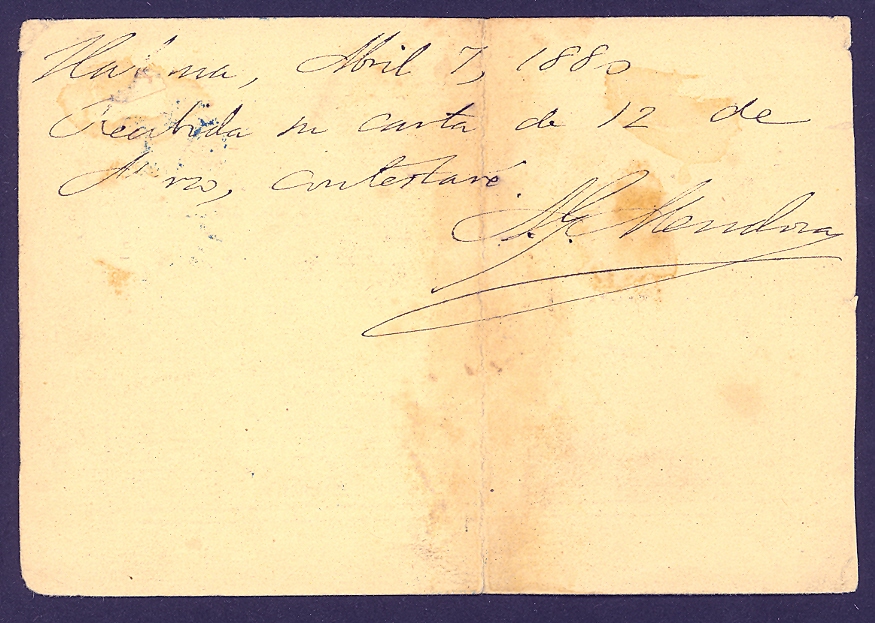 Habana, Abril 7, 1880
Recibida su carta de 12 de
Mzo, contestaré
A. G. Mendoza